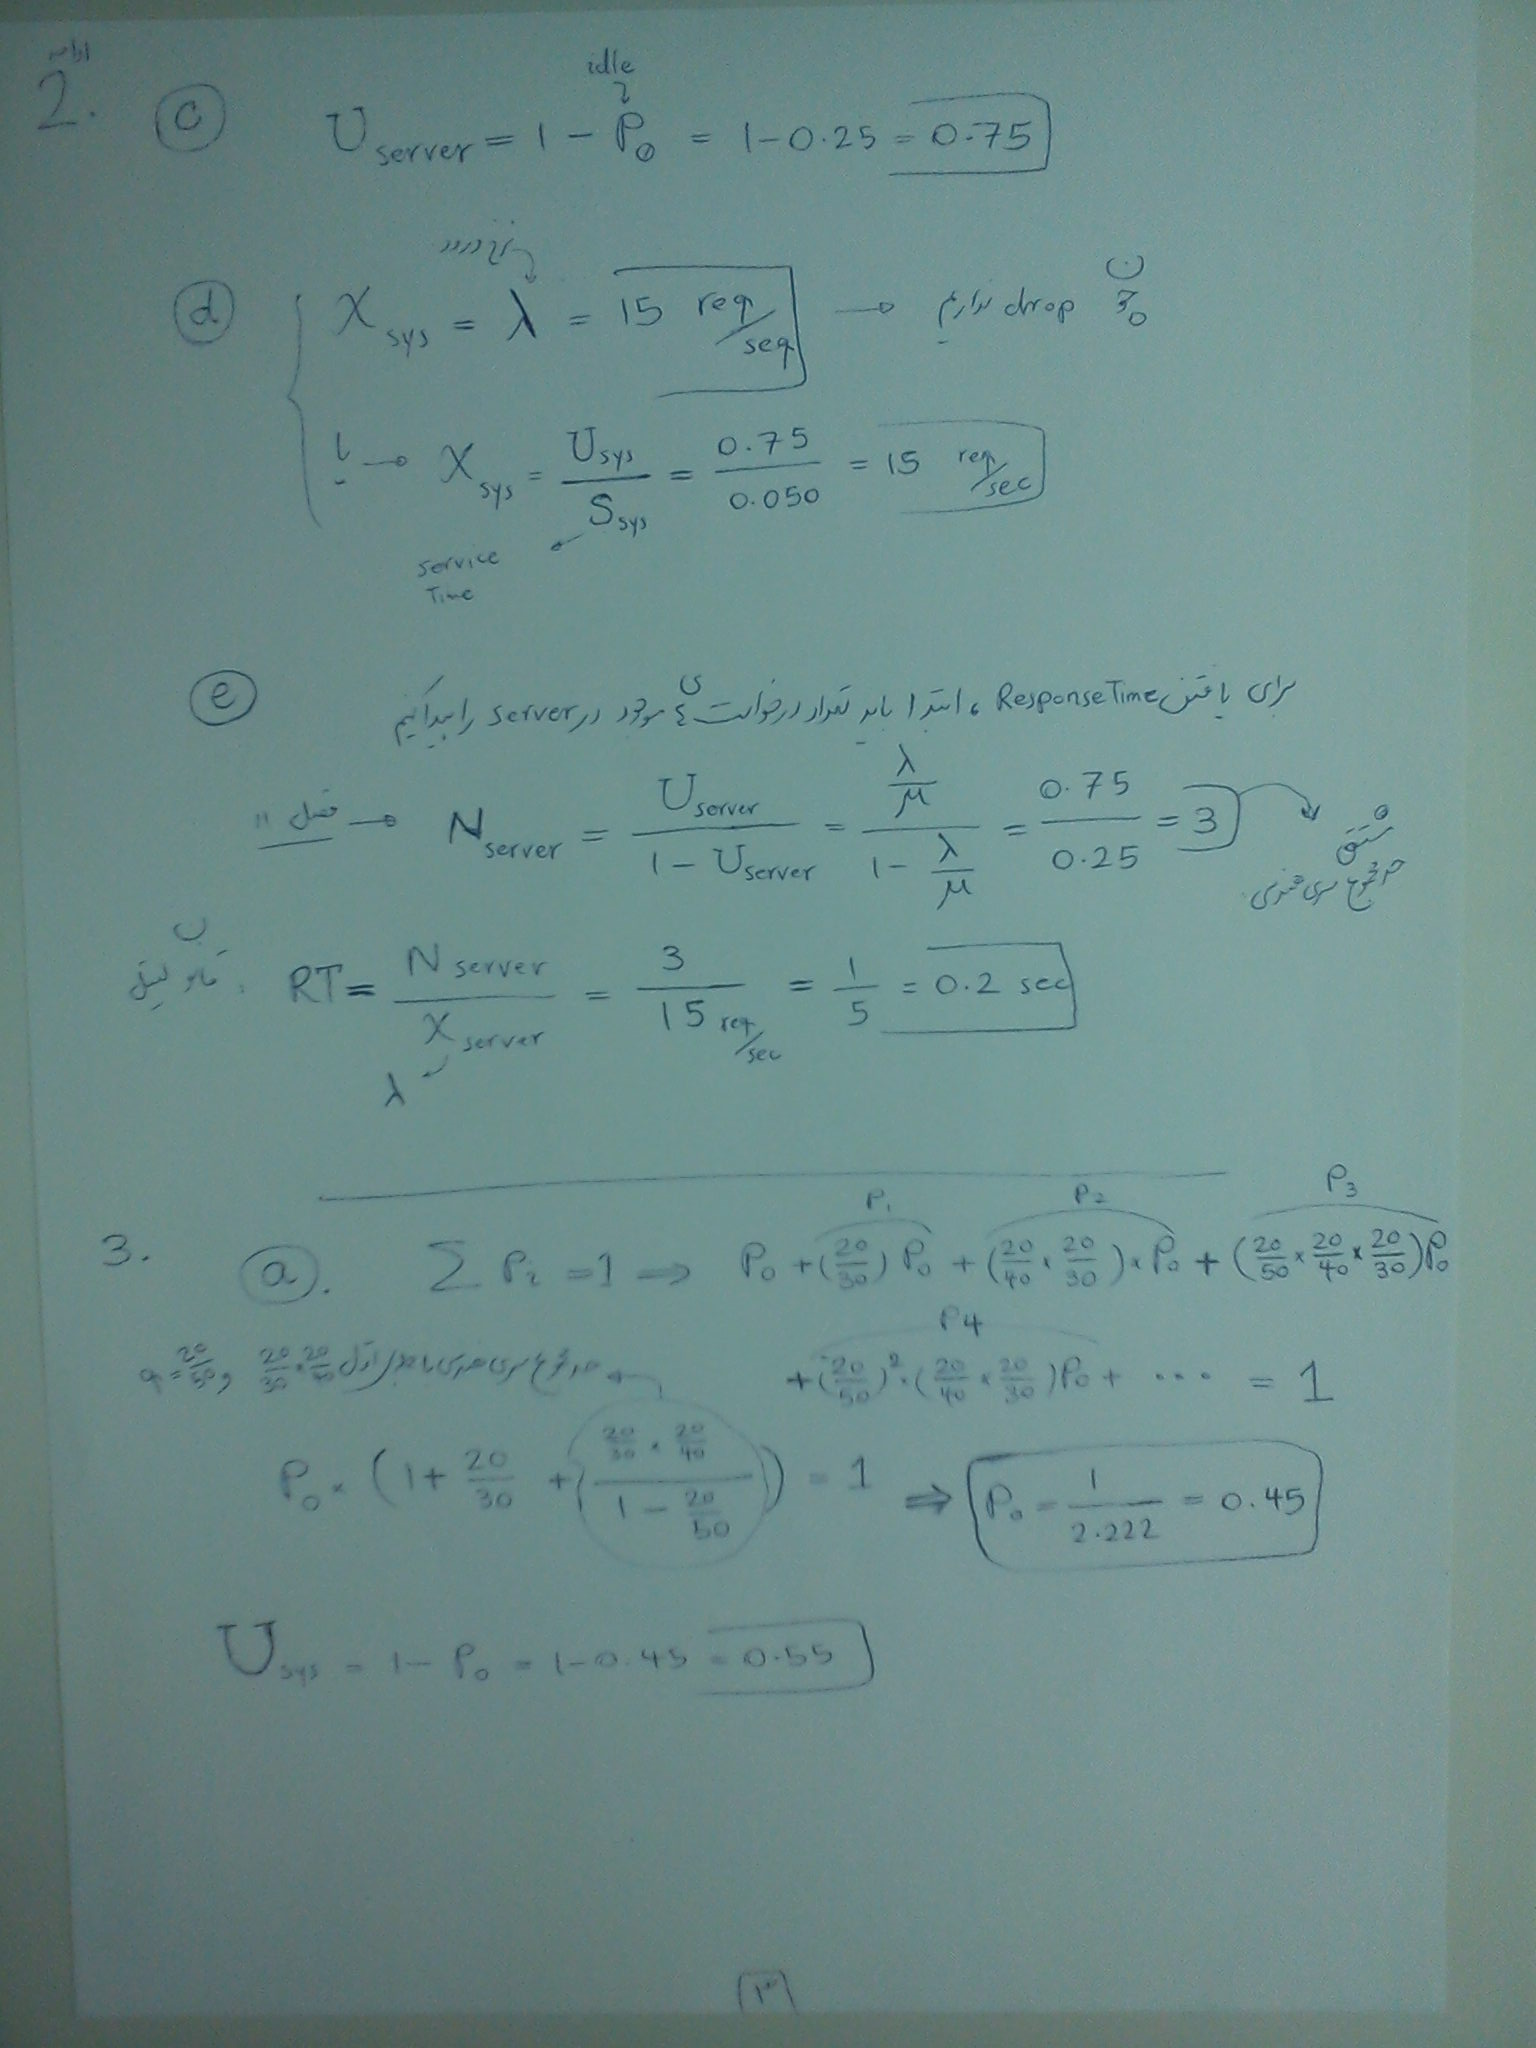 ادامه
2.
c
idle
U server = 1 - P0 = 1-0.25 = 0.75
نرخ ورود
d X sys = λ = 15 req/seq → چون drop نداریم
یا → X sys = U sys / S sys = 0.75 / 0.050 = 15 req/sec
service Time
e برای یافتن Response Time، ابتدا باید تعداد درخواست های موجود در server را پیدا کنیم
فصل 11 → N server = U server / 1 - U server = λ/μ / 1 - λ/μ = 0.75 / 0.25 = 3 مشتق مجموع سری هندسی
قانون لیتل: RT = N server / X server = 3 / 15 req/sec = 1/5 = 0.2 sec
λ
P1 P2 P3
3. a. Σ Pi = 1 ⇒ P0 + (20/30) P0 + (20/40 × 20/30) × P0 + (20/50 × 20/40 × 20/30) P0
P4
+ (20/50)² × (20/40 × 20/30) P0 + ... = 1
مجموع سری هندسی با جمله اول 20/30 × 20/40 و q = 20/50
P0 × (1 + 20/30 + (20/30 × 20/40 / 1 - 20/50)) = 1 ⇒ P0 = 1 / 2.222 = 0.45
U sys = 1 - P0 = 1-0.45 = 0.55
۳